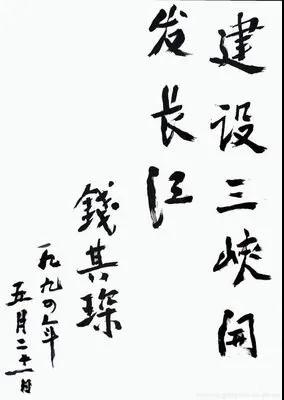 建设三峽開
发长江
錢其琛
一九九四年
五月二十一日